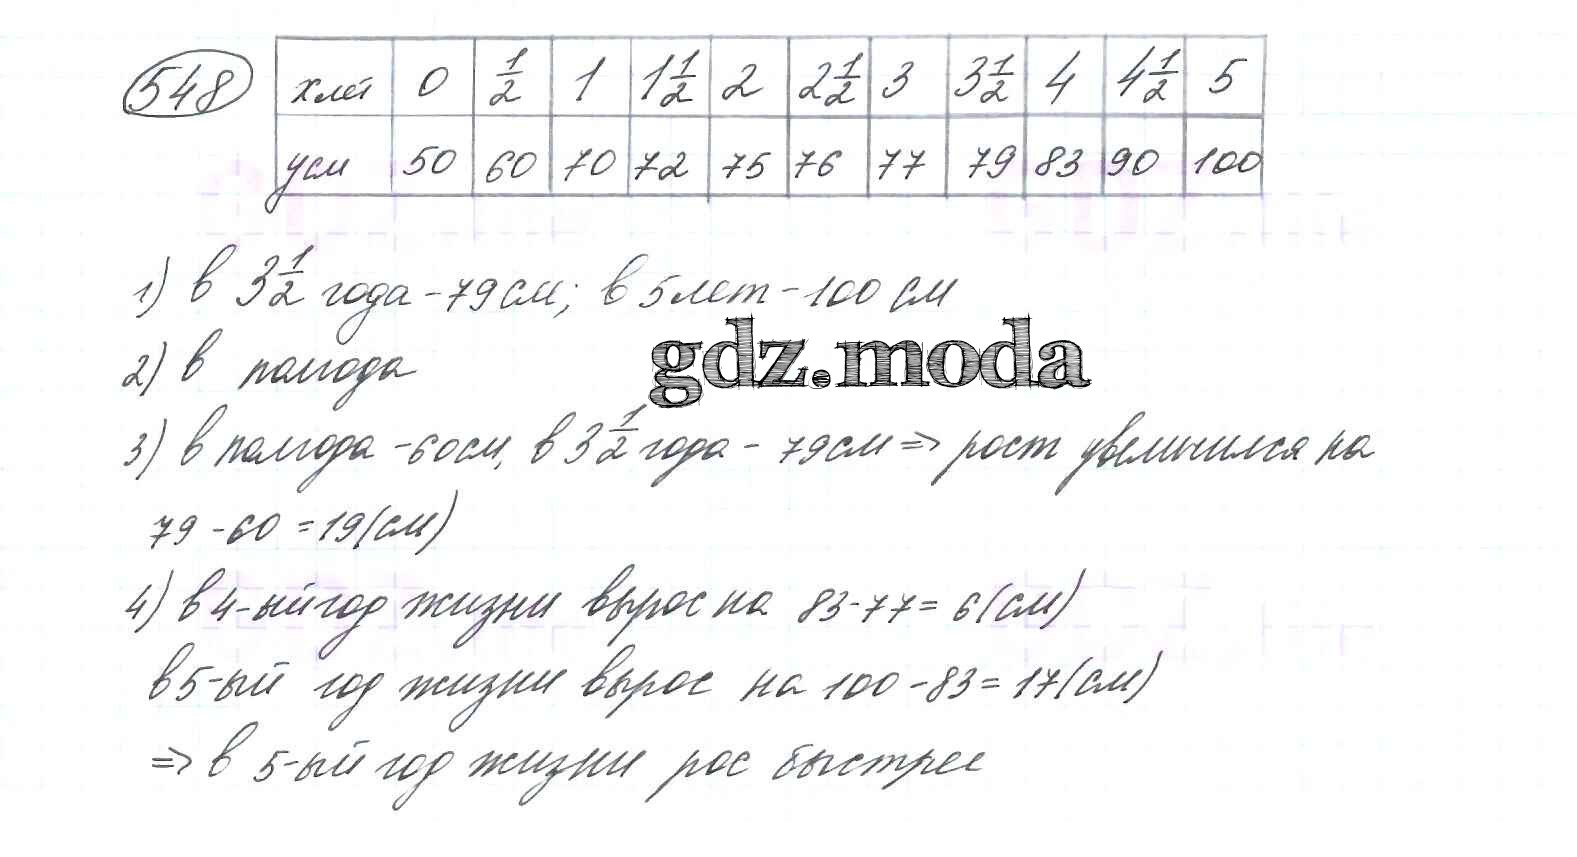 548
x лет 0 1/2 1 1 1/2 2 2 1/2 3 3 1/2 4 4 1/2 5
y см 50 60 70 72 75 76 77 79 83 90 100
1) в 3 1/2 года - 79 см; в 5 лет - 100 см
gdz.moda
2) в полгода
3) в полгода - 60 см, в 3 1/2 года - 79 см => рост увеличился на
79 - 60 = 19 (см)
4) в 4-ый год жизни вырос на 83 - 77 = 6 (см)
в 5-ый год жизни вырос на 100 - 83 = 17 (см)
=> в 5-ый год жизни рос быстрее